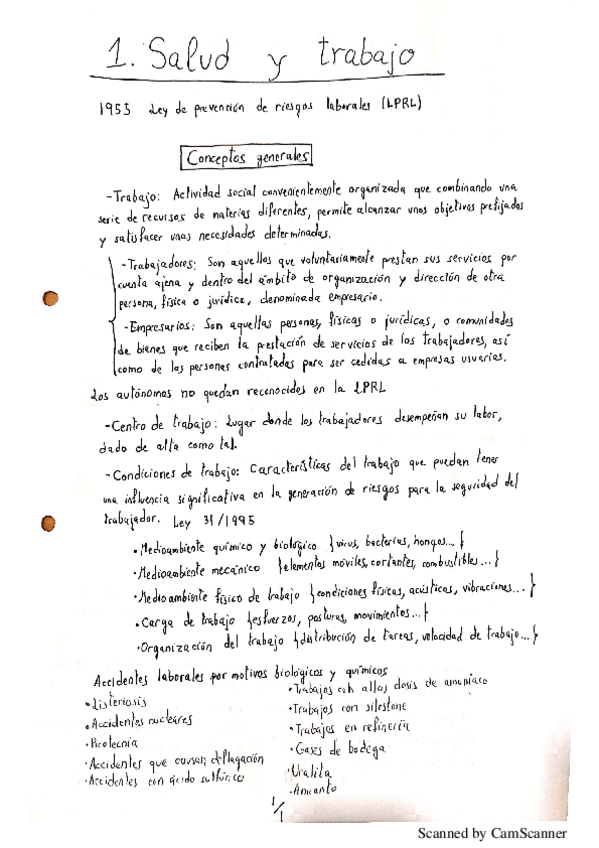 1. Salud y trabajo
1995 Ley de prevención de riesgos laborales (LPRL)
Conceptos generales
-Trabajo: Actividad social convenientemente organizada que combinando una
serie de recursos de materias diferentes, permite alcanzar unos objetivos prefijados
y satisfacer unas necesidades determinadas.
-Trabajadores: Son aquellos que voluntariamente prestan sus servicios por
cuenta ajena y dentro del ámbito de organización y dirección de otra
persona, física o jurídica, denominada empresario.
-Empresarios: Son aquellas personas, físicas o jurídicas, o comunidades
de bienes que reciben la prestación de servicios de los trabajadores, así
como de las personas contratadas para ser cedidas a empresas usuarias.
Los autónomos no quedan reconocidos en la LPRL
-Centro de trabajo: Lugar donde los trabajadores desempeñan su labor,
dado de alta como tal.
-Condiciones de trabajo: Características del trabajo que puedan tener
una influencia significativa en la generación de riesgos para la seguridad del
trabajador. Ley 31/1995
• Medioambiente químico y biológico {virus, bacterias, hongos...}
• Medioambiente mecánico {elementos móviles, cortantes, combustibles...}
• Medioambiente físico de trabajo {condiciones físicas, acústicas, vibraciones...}
• Carga de trabajo {esfuerzos, posturas, movimientos...}
• Organización del trabajo {distribución de tareas, velocidad de trabajo...}
Accidentes laborales por motivos biológicos y químicos
• Listeriosis
• Accidentes nucleares
• Pirotecnia
• Accidentes que causan deflagación
• Accidentes con ácido sulfúrico
• Trabajos con altas dosis de amoníaco
• Trabajos con silestone
• Trabajos en refinería
• Gases de bodega
• Uralita
• Amianto
1/1
Scanned by CamScanner